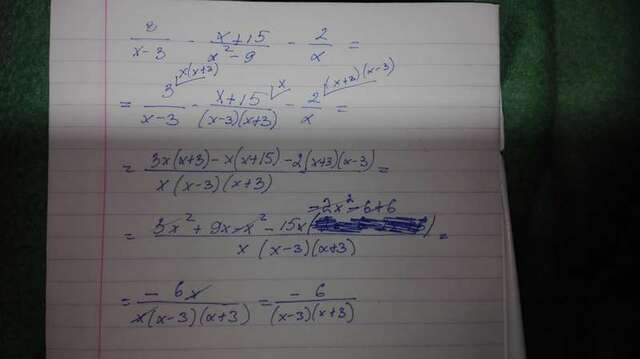 3/(x-3) - (x+15)/(x²-9) - 2/x =
= 3/(x-3) - (x+15)/((x-3)(x+3)) - 2/x =
x(x+3) x (x+3)(x-3)
= (3x(x+3) - x(x+15) - 2(x+3)(x-3))/(x(x-3)(x+3)) =
= (3x² + 9x - x² - 15x( )/(x(x-3)(x+3)) =
= -6x/(x(x-3)(x+3)) = -6/((x-3)(x+3))